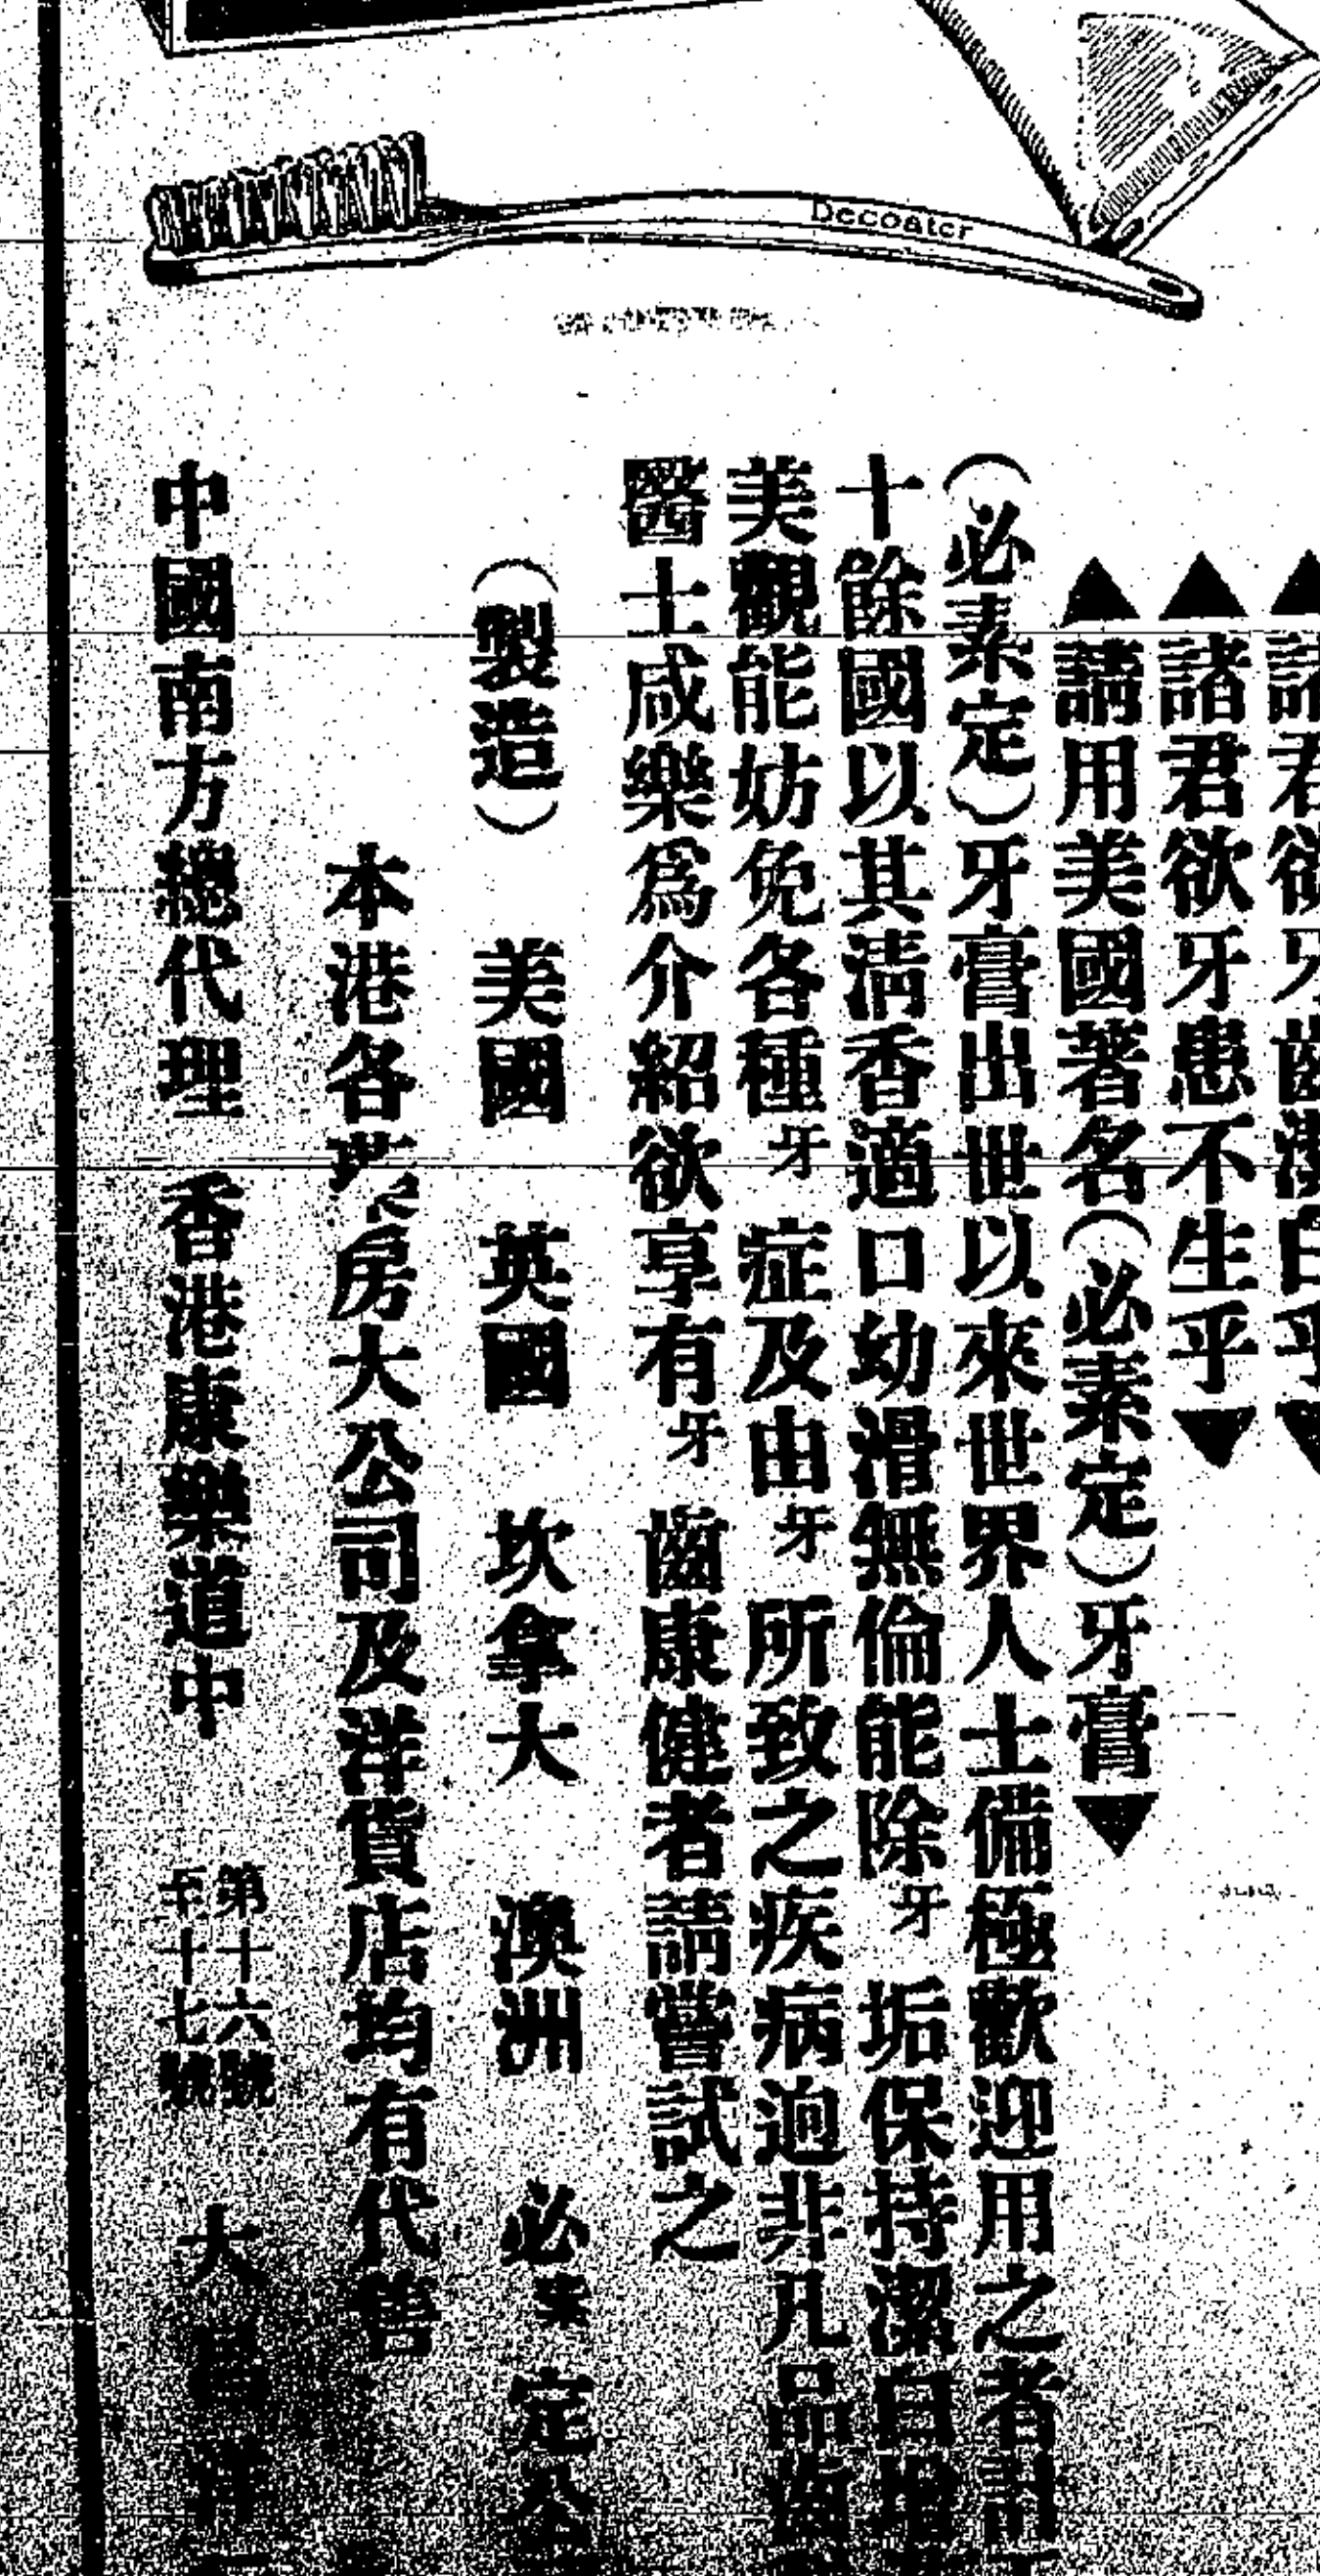 Decoater
諸君欲牙齒潔白乎
▲諸君欲牙患不生乎▼
▲請用美國著名(必素定)牙膏▼
(必素定)牙膏出世以來世界人士備極歡迎用之者計
十餘國以其清香適口幼滑無倫能除牙垢保持潔白
美觀能妨免各種牙症及由牙所致之疾病逈非凡品齒
醫士咸樂爲介紹欲享有牙齒康健者請嘗試之
(製造) 美國 英國 坎拿大 澳洲 必素定公
本港各藥房大公司及洋貨店均有代售
中國南方總代理 香港康樂道中 第十六號至十七號 大昌祥